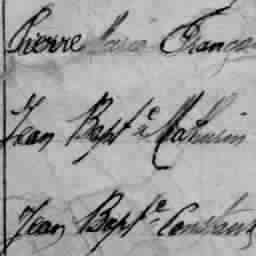 Pierre Marie França
Jean Bapt^e Mathurin
Jean Bapt^e Constant